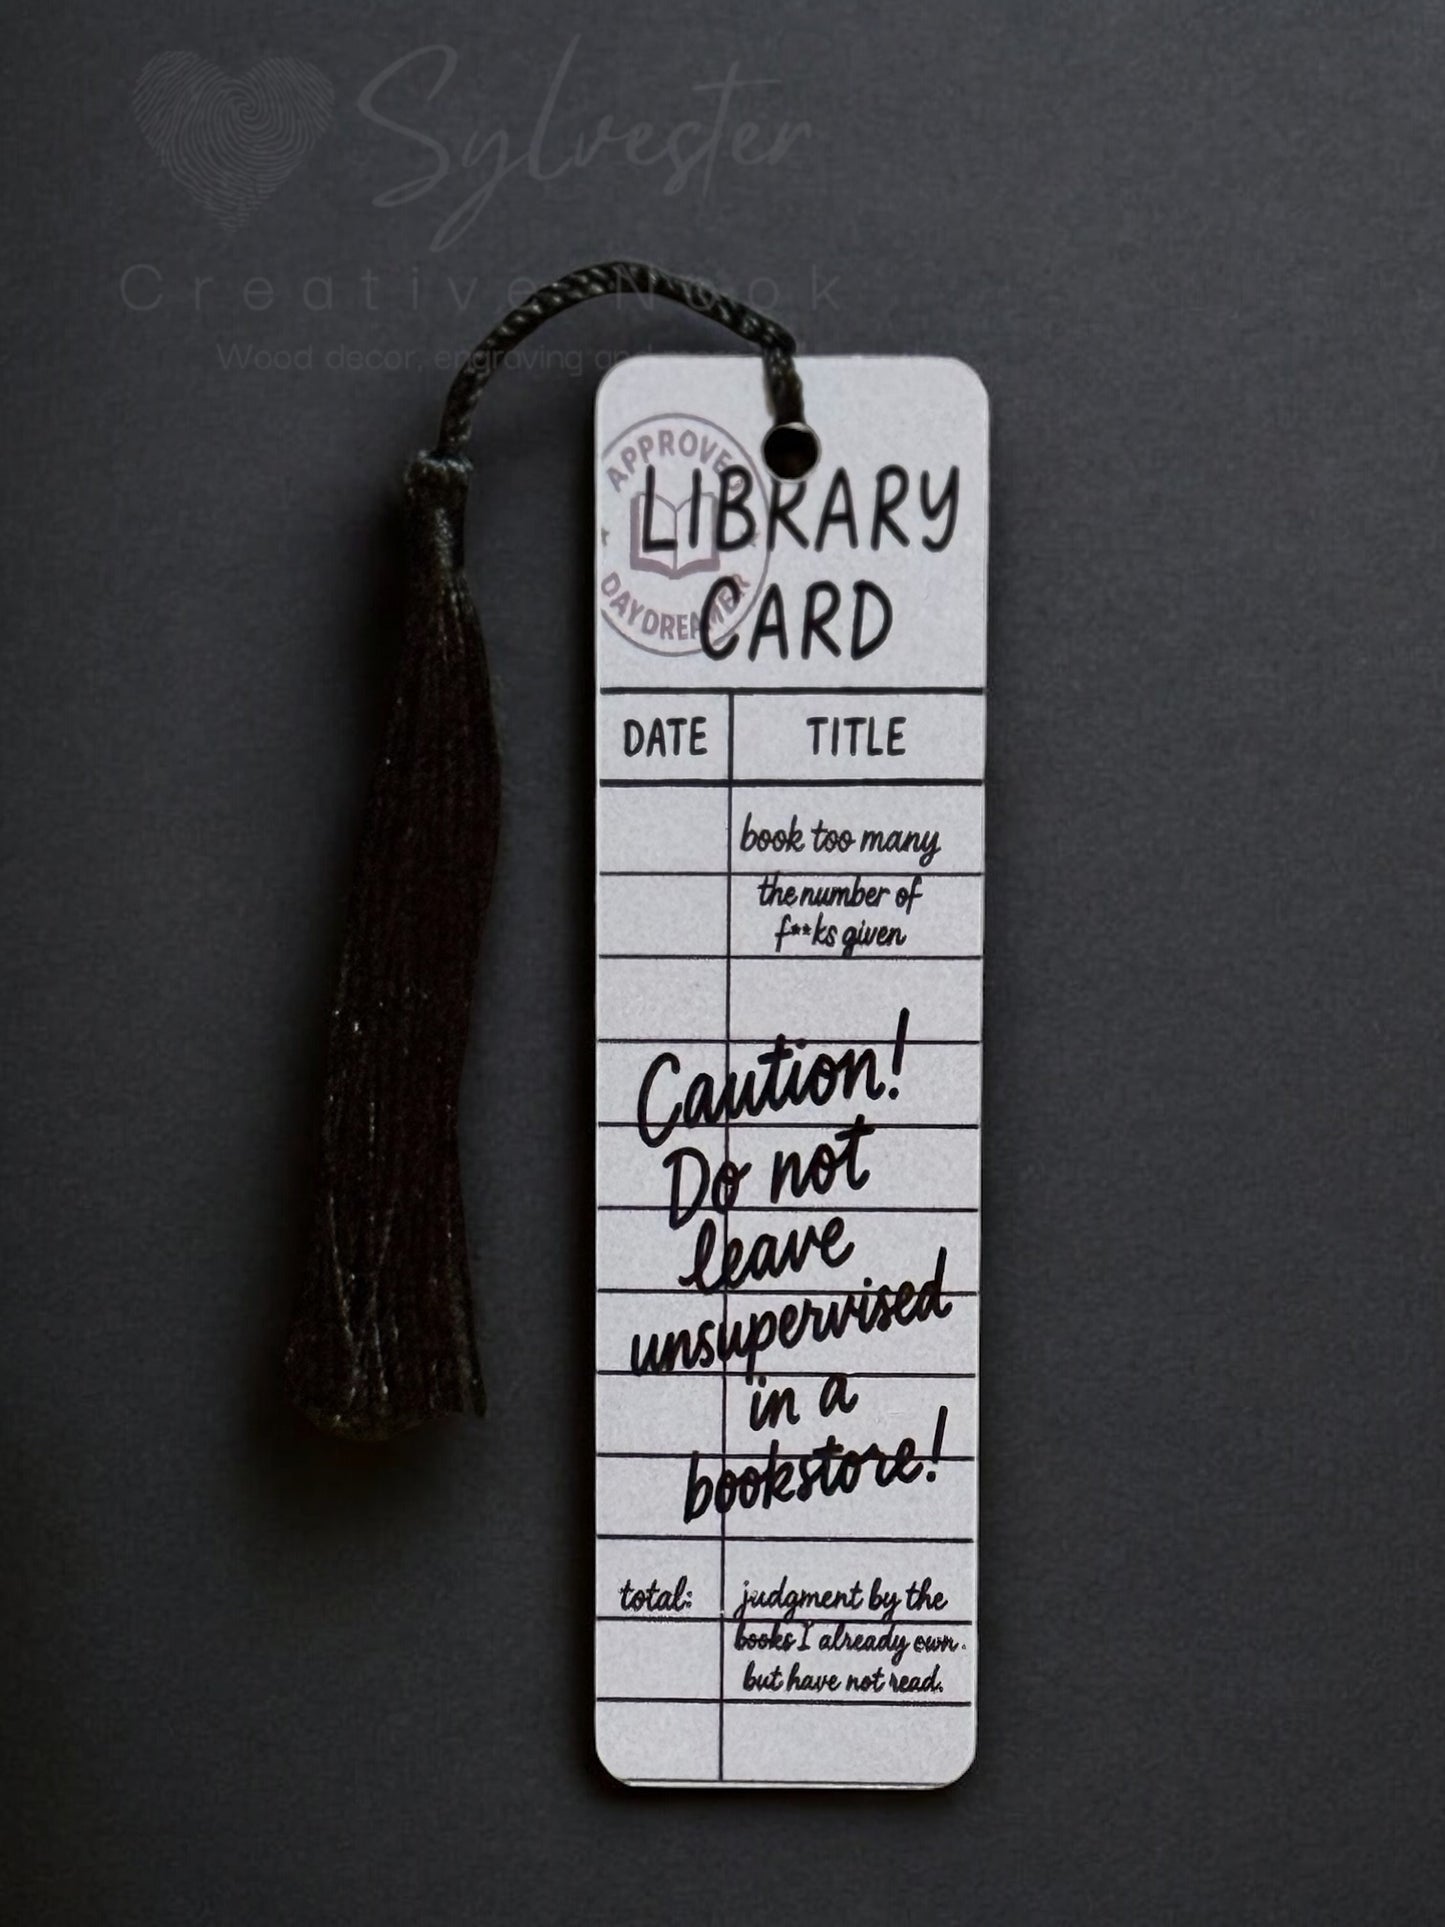 Sylvester
Creative Nook
Wood decor, engraving and
APPROVED
DAYDREAMER
LIBRARY
CARD
DATE TITLE
book too many
the number of
f**ks given
Caution!
Do not
leave
unsupervised
in a
bookstore!
total: judgment by the
books I already own.
but have not read.